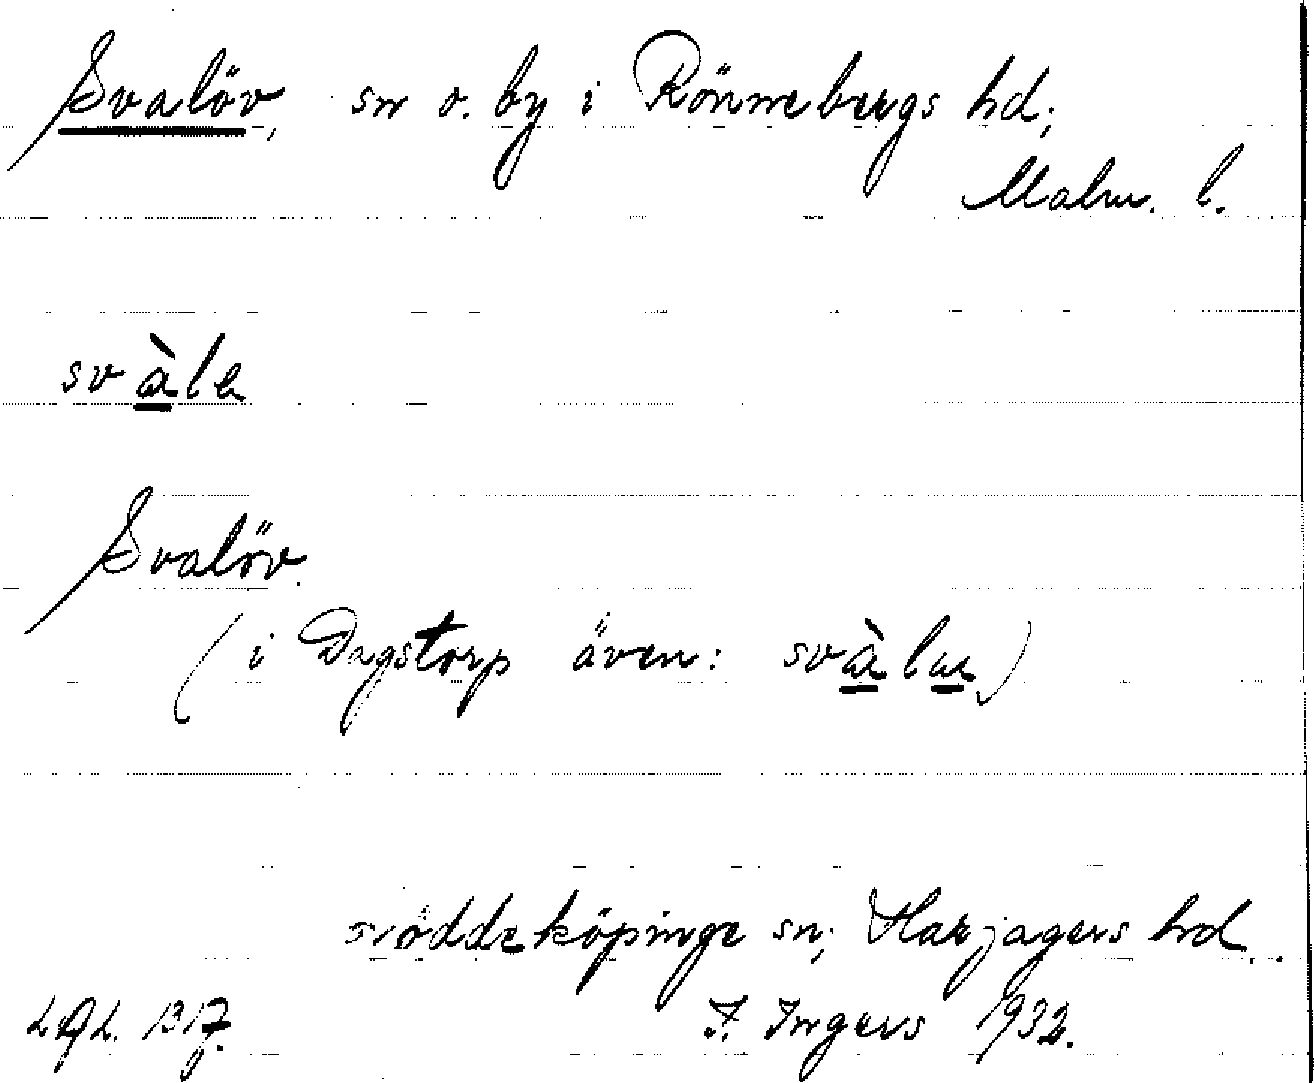 Svalöv, sn o. by i Rönnebergs hd;
Malm. l.
svàlɐ
Svalöv.
(i Dagstorp även: svàlaɐ)
nöddeköpinge sn; Harjagers hd.
LAL. 1317. I. Ingers 1932.